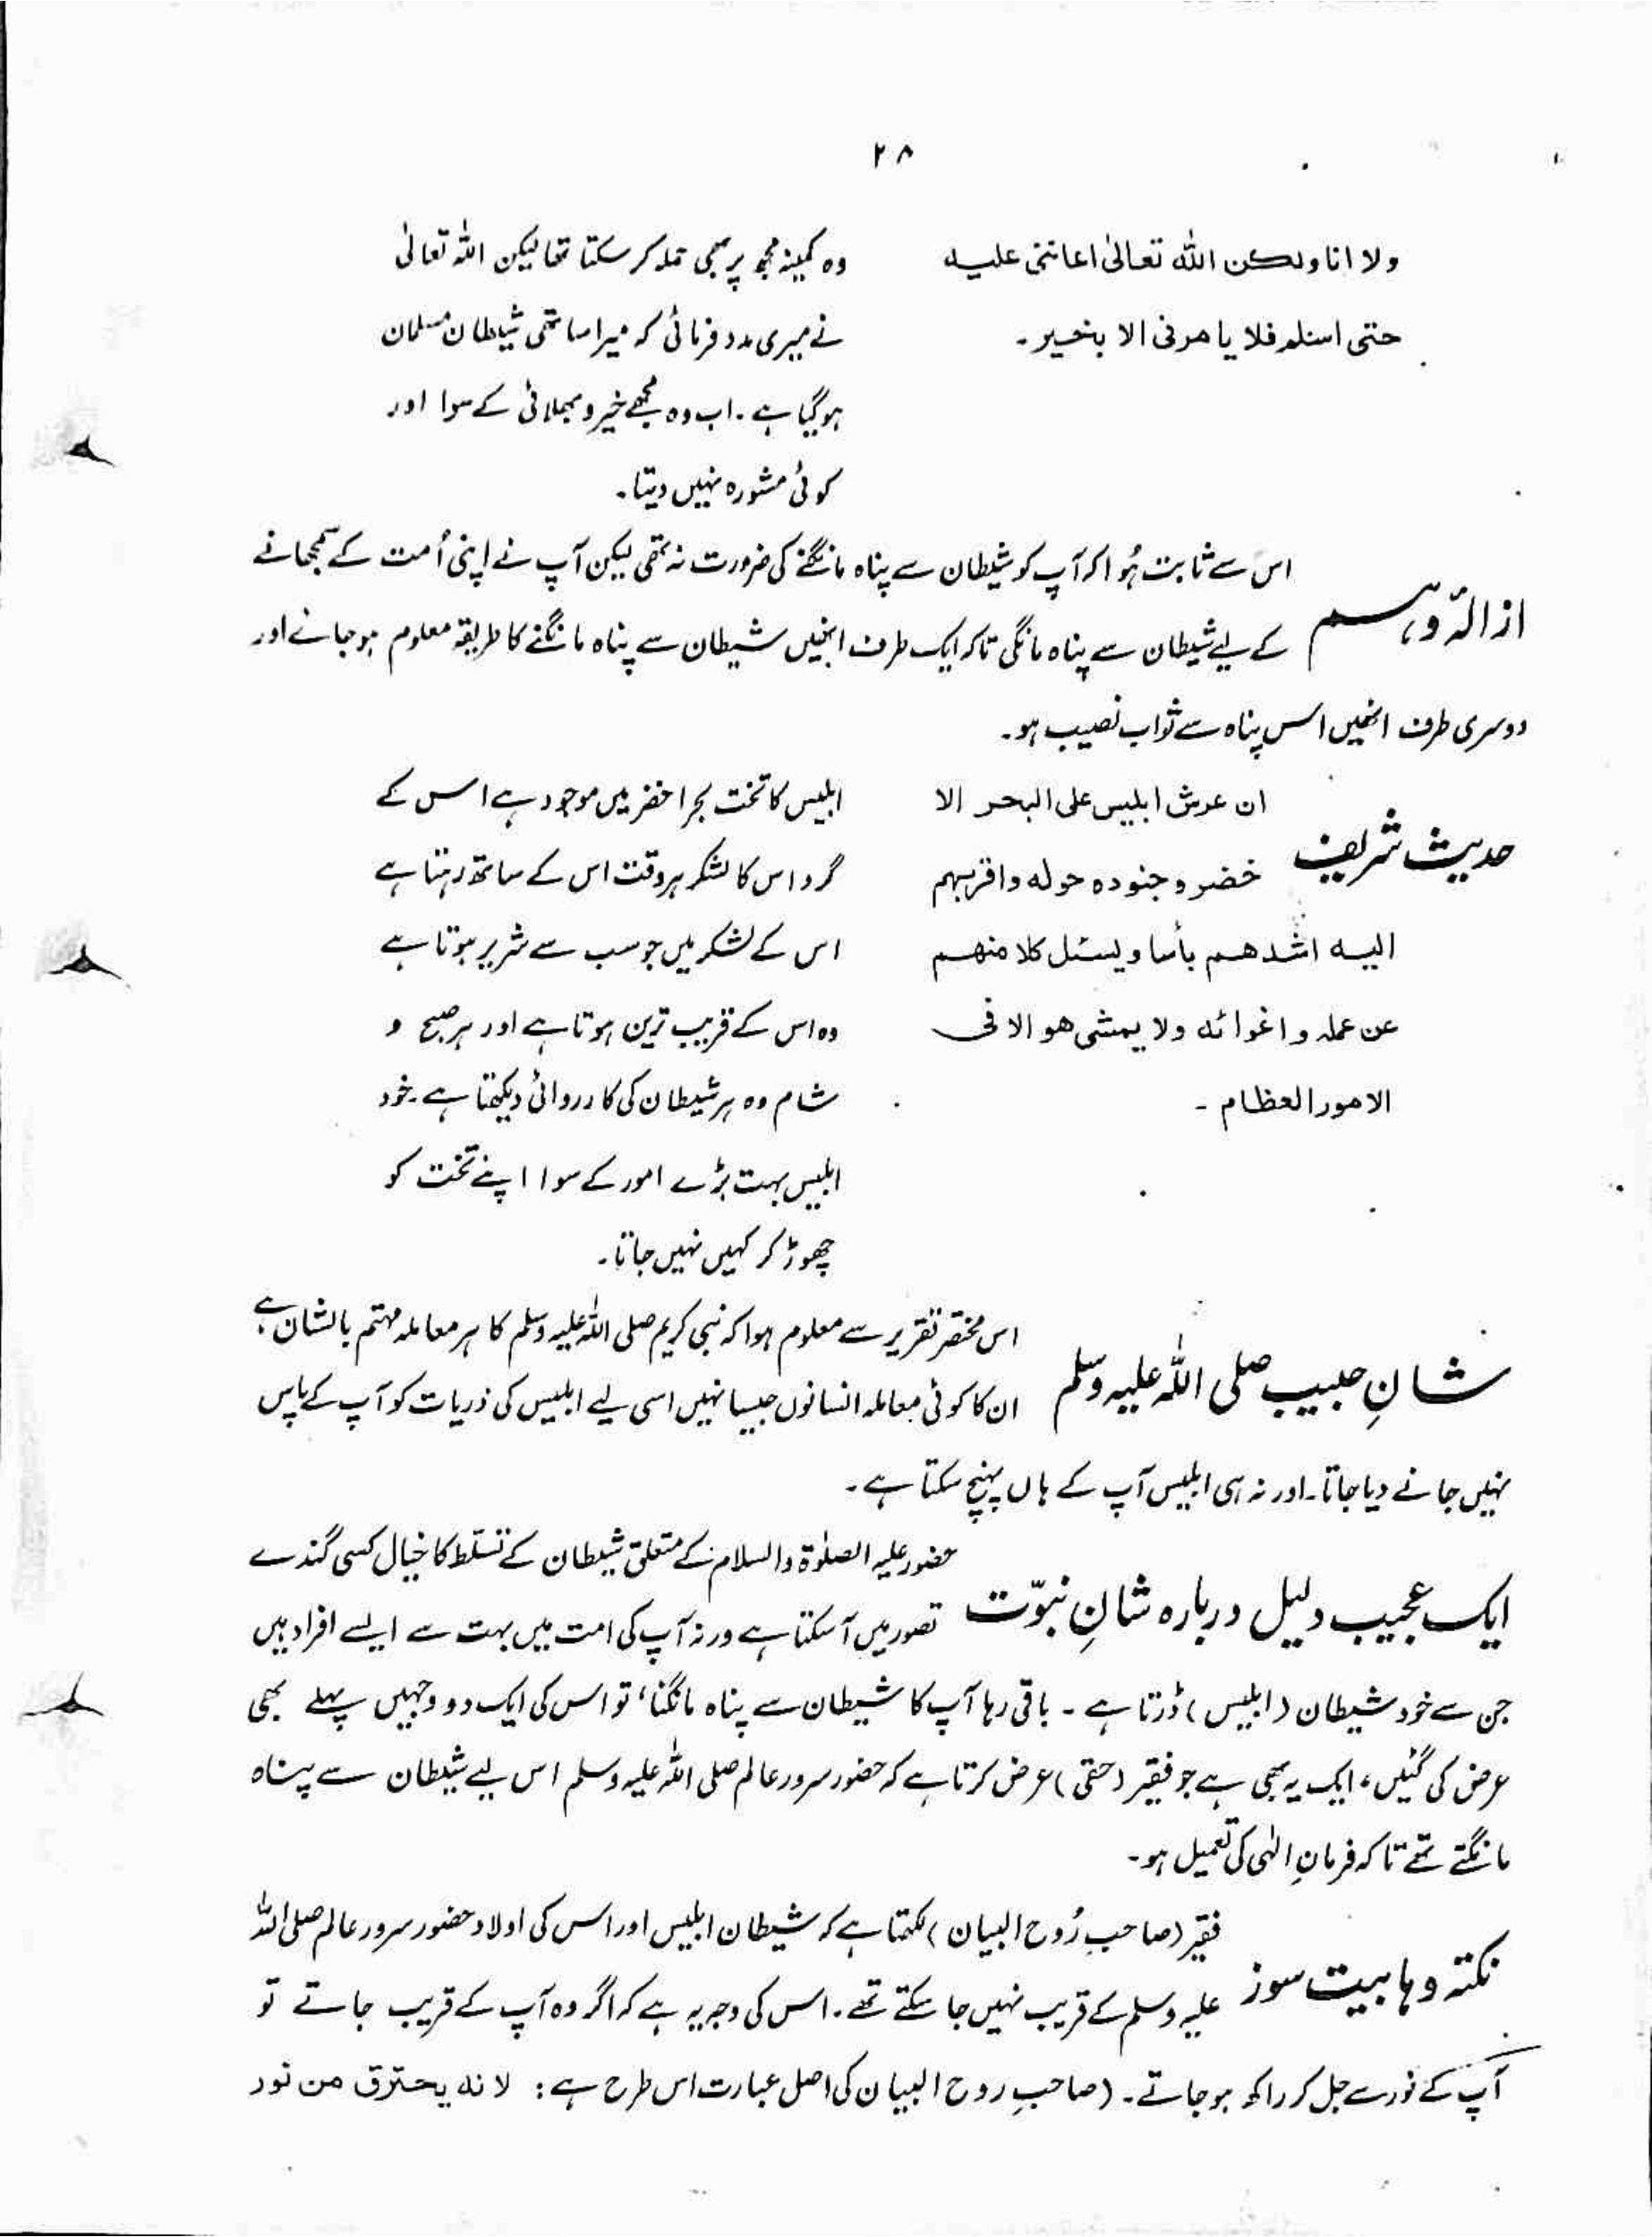 ۲۸
ولا انا ولكن الله تعالىٰ اعاننى عليه
حتى اسلم فلا يامرنى الا بخير۔
وہ کمینہ مجھ پر بھی حملہ کر سکتا تھا لیکن اللہ تعالیٰ
نے میری مدد فرمائی کہ میرا ساتھی شیطان مسلمان
ہو گیا ہے۔ اب وہ مجھے خیر و بھلائی کے سوا اور
کوئی مشورہ نہیں دیتا۔
ازالۂ وہم
اس سے ثابت ہُوا کہ آپ کو شیطان سے پناہ مانگنے کی ضرورت نہ تھی لیکن آپ نے اپنی اُمت کے سمجھانے
کے لیے شیطان سے پناہ مانگی تاکہ ایک طرف انھیں شیطان سے پناہ مانگنے کا طریقہ معلوم ہو جائے اور
دوسری طرف انھیں اس پناہ سے ثواب نصیب ہو۔
حدیث شریف
ان عرش ابليس على البحر الا
خضر و جنوده حوله واقربهم
اليه اشدهم بأسا ويسئل كلا منهم
عن عمله و اغوائه ولا يمشى هو الا فى
الامور العظام ۔
ابلیس کا تخت بحر اخضر میں موجود ہے اس کے
گرد اس کا لشکر ہر وقت اس کے ساتھ رہتا ہے
اس کے لشکر میں جو سب سے شریر ہوتا ہے
وہ اس کے قریب ترین ہوتا ہے اور ہر صبح و
شام وہ ہر شیطان کی کارروائی دیکھتا ہے۔ خود
ابلیس بہت بڑے امور کے سوا اپنے تخت کو
چھوڑ کر کہیں نہیں جاتا۔
شانِ حبیب صلی اللہ علیہ وسلم
اس مختصر تقریر سے معلوم ہوا کہ نبی کریم صلی اللہ علیہ وسلم کا ہر معاملہ مہتم بالشان ہے
ان کا کوئی معاملہ انسانوں جیسا نہیں اسی لیے ابلیس کی ذریات کو آپ کے پاس
نہیں جانے دیا جاتا۔ اور نہ ہی ابلیس آپ کے ہاں پہنچ سکتا ہے۔
ایک عجیب دلیل دربارہ شانِ نبوّت
حضور علیہ الصلوٰۃ والسلام کے متعلق شیطان کے تسلّط کا خیال کسی گندے
تصور میں آ سکتا ہے ورنہ آپ کی امت میں بہت سے ایسے افراد ہیں
جن سے خود شیطان (ابلیس) ڈرتا ہے ۔ باقی رہا آپ کا شیطان سے پناہ مانگنا، تو اس کی ایک دو وجہیں پہلے بھی
عرض کی گئیں، ایک یہ بھی ہے جو فقیر (حقی) عرض کرتا ہے کہ حضور سرور عالم صلی اللہ علیہ وسلم اس لیے شیطان سے پناہ
مانگتے تھے تاکہ فرمانِ الٰہی کی تعمیل ہو۔
نکتۂ وہابیت سوز
فقیر (صاحبِ رُوح البیان) لکھتا ہے کہ شیطان ابلیس اور اس کی اولاد حضور سرور عالم صلی اللہ
علیہ وسلم کے قریب نہیں جا سکتے تھے۔ اس کی وجہ یہ ہے کہ اگر وہ آپ کے قریب جاتے تو
آپ کے نور سے جل کر راکھ ہو جاتے۔ (صاحبِ روح البیان کی اصل عبارت اس طرح ہے: لانه يحترق من نور